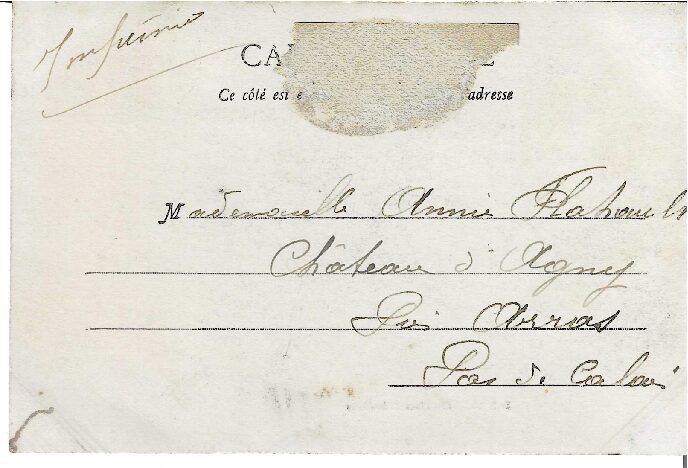 Imprimé
CA E
Ce côté est e adresse
Mademoiselle Annie
Château d'Agny
Près Arras
Pas de Calais